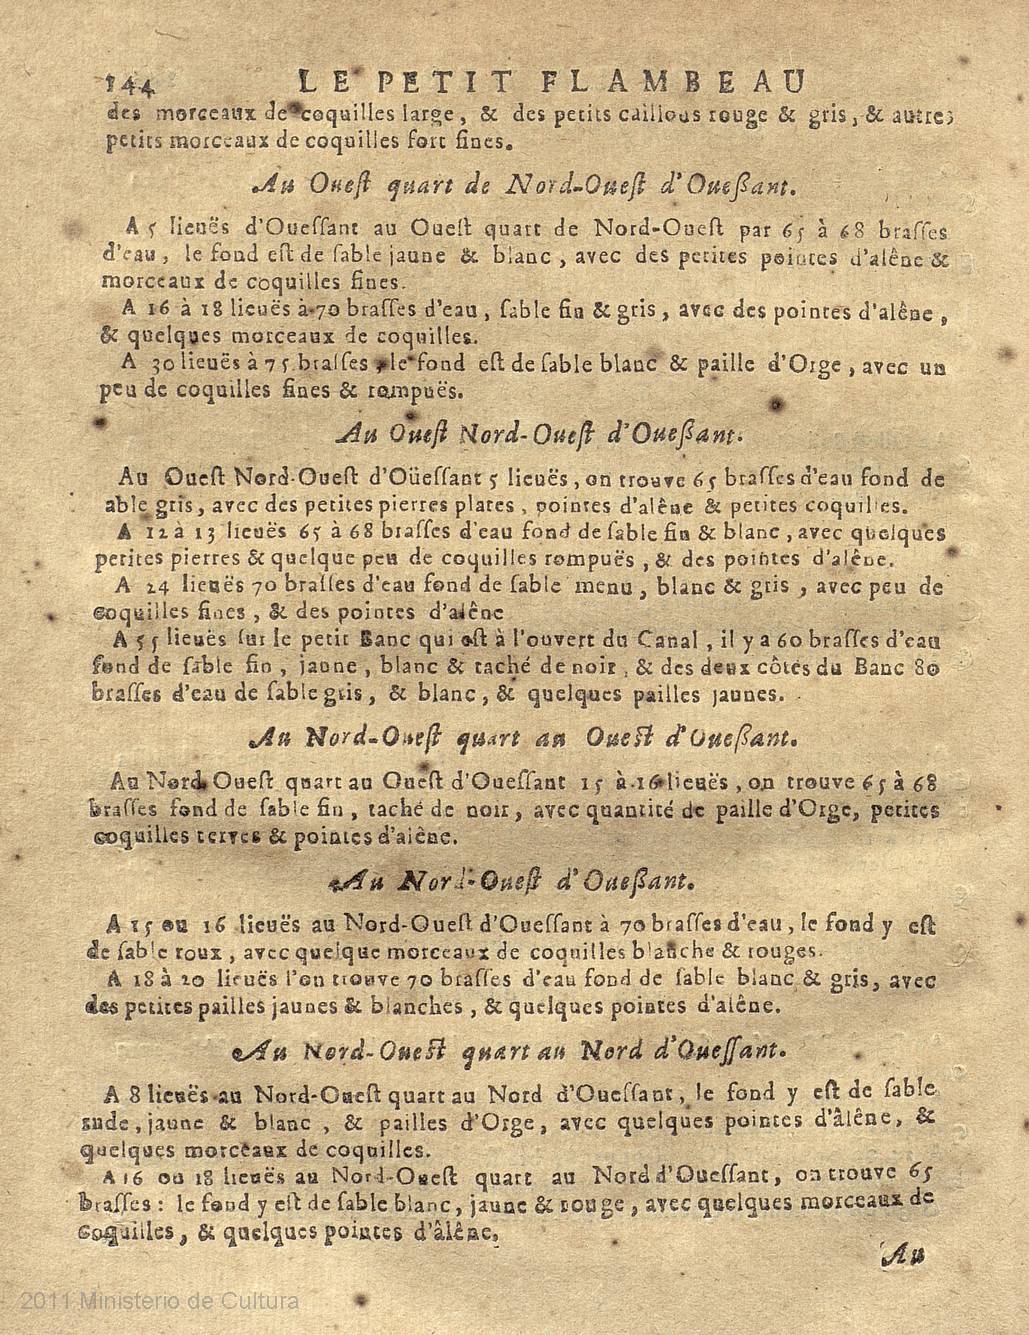 144 LE PETIT FLAMBEAU
des morceaux de coquilles large, & des petits caillous rouge & gris, & autres
petits morceaux de coquilles fort fines.
Au Oueſt quart de Nord-Oueſt d'Oueßant.
A 5 lieuës d'Oueſſant au Oueſt quart de Nord-Oueſt par 65 à 68 braſſes
d'eau, le fond eſt de ſable jaune & blanc, avec des petites pointes d'alêne &
morceaux de coquilles fines.
A 16 à 18 lieuës à 70 braſſes d'eau, ſable fin & gris, avec des pointes d'alêne,
& quelques morceaux de coquilles.
A 30 lieuës à 75 braſſes, le fond eſt de ſable blanc & paille d'Orge, avec un
peu de coquilles fines & rompuës.
Au Oueſt Nord-Oueſt d'Oueßant.
Au Oueſt Nord-Oueſt d'Oüeſſant 5 lieuës, on trouve 65 braſſes d'eau fond de
able gris, avec des petites pierres plates, pointes d'alêne & petites coquilles.
A 12 à 13 lieuës 65 à 68 braſſes d'eau fond de ſable fin & blanc, avec quelques
petites pierres & quelque peu de coquilles rompuës, & des pointes d'alêne.
A 24 lieuës 70 braſſes d'eau fond de ſable menu, blanc & gris, avec peu de
coquilles fines, & des pointes d'alêne
A 55 lieuës ſur le petit Banc qui eſt à l'ouvert du Canal, il y a 60 braſſes d'eau
fond de ſable fin, jaune, blanc & taché de noir, & des deux côtés du Banc 80
braſſes d'eau de ſable gris, & blanc, & quelques pailles jaunes.
Au Nord-Oueſt quart au Oueſt d'Oueßant.
Au Nord Oueſt quart au Oueſt d'Oueſſant 15 à 16 lieuës, on trouve 65 à 68
braſſes fond de ſable fin, taché de noir, avec quantité de paille d'Orge, petites
coquilles terves & pointes d'alêne.
Au Nord-Oueſt d'Oueßant.
A 15 ou 16 lieuës au Nord-Oueſt d'Oueſſant à 70 braſſes d'eau, le fond y eſt
de ſable roux, avec quelque morceaux de coquilles blanche & rouges.
A 18 à 20 lieuës l'on trouve 70 braſſes d'eau fond de ſable blanc & gris, avec
des petites pailles jaunes & blanches, & quelques pointes d'alêne.
Au Nord-Oueſt quart au Nord d'Oueſſant.
A 8 lieuës au Nord-Oueſt quart au Nord d'Oueſſant, le fond y eſt de ſable
rude, jaune & blanc, & pailles d'Orge, avec quelques pointes d'âlêne, &
quelques morceaux de coquilles.
A 16 ou 18 lieuës au Nord-Oueſt quart au Nord d'Oueſſant, on trouve 65
braſſes : le fond y eſt de ſable blanc, jaune & rouge, avec quelques morceaux de
coquilles, & quelques pointes d'âlêne.
Au
2011 Ministerio de Cultura